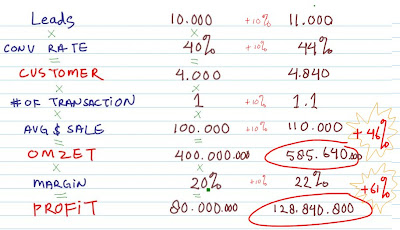 Leads 10.000 +10% 11.000
x x
CONV RATE 40% +10% 44%
= =
CUSTOMER 4.000 4.840
x x
# OF TRANSACTION 1 +10% 1.1
x x
AVG $ SALE 100.000 +10% 110.000 +46%
= =
OMZET 400.000.000 585.640.000
x x
MARGIN 20% +10% 22% +61%
= =
PROFIT 80.000.000 128.840.800